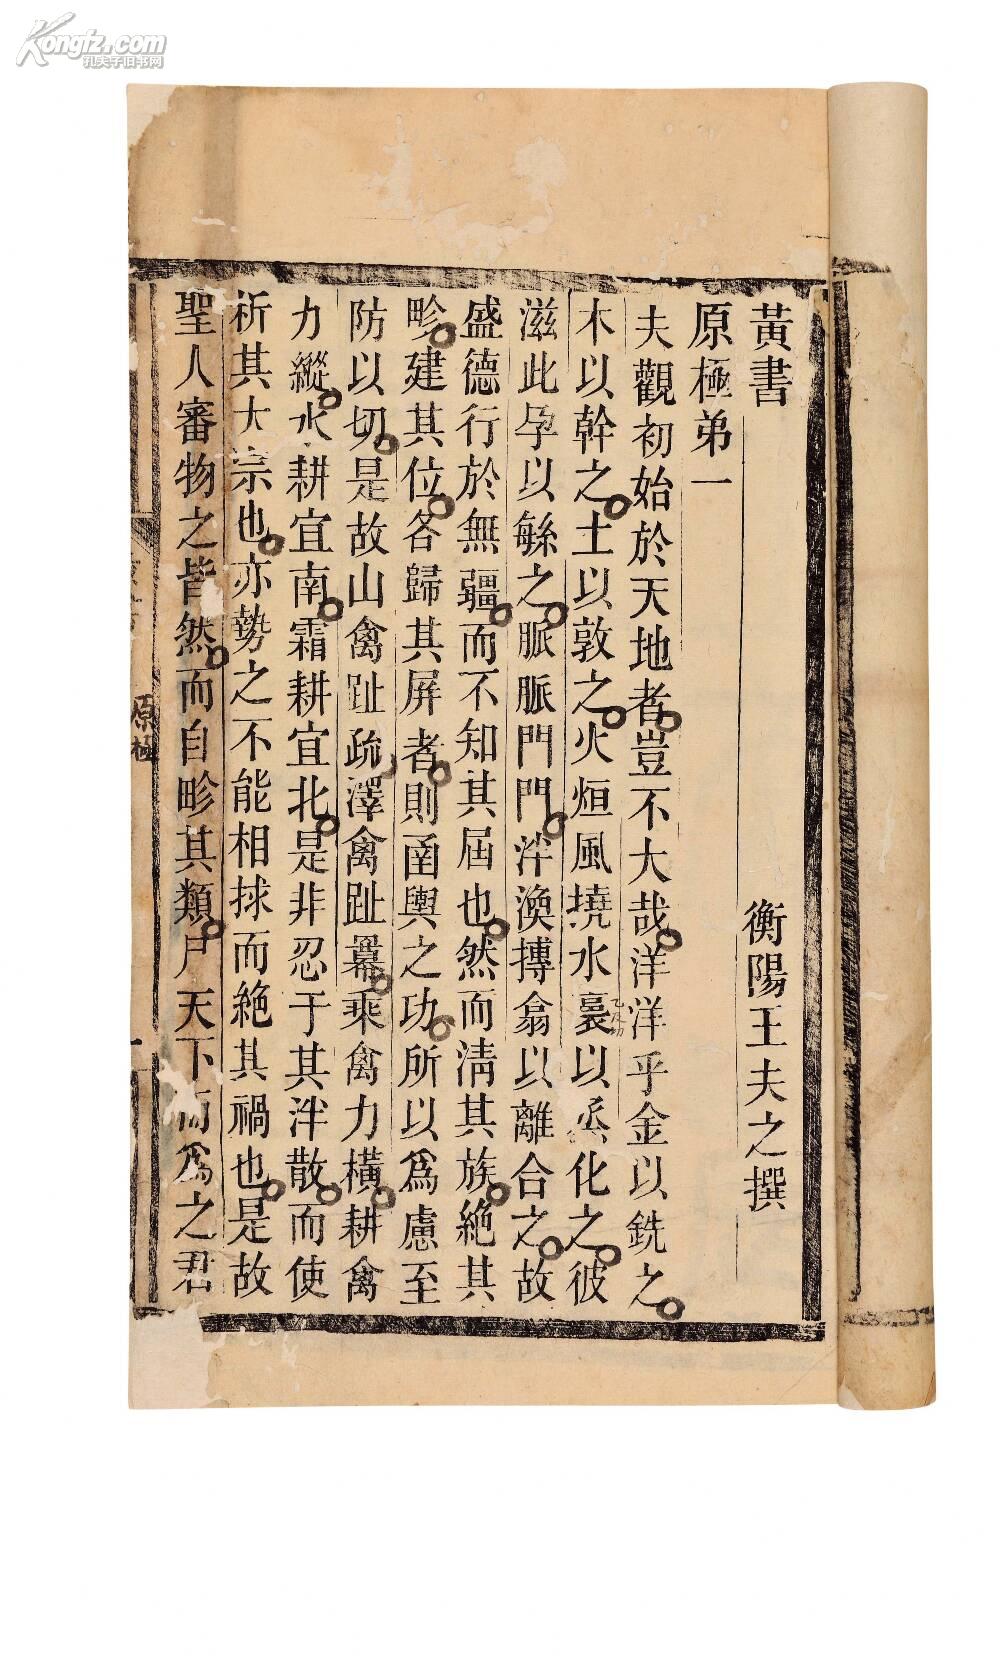 Kongfz.com
孔夫子旧书网
黃書
衡陽王夫之撰
原極弟一
夫觀初始於天地者豈不大哉洋洋乎金以銑之
木以幹之土以敦之火烜風撓水裛以烝化之彼
滋此孕以緐之脈脈門門泮渙摶翕以離合之故
盛德行於無疆而不知其屆也然而清其族絕其
畛建其位各歸其屏者則函輿之功所以爲慮至
防以切是故山禽趾疏澤禽趾羃乘禽力橫耕禽
力縱水耕宜南霜耕宜北是非忍于其泮散而使
析其大宗也亦勢之不能相捄而絕其禍也是故
聖人審物之皆然而自畛其類尸天下而爲之君
原極